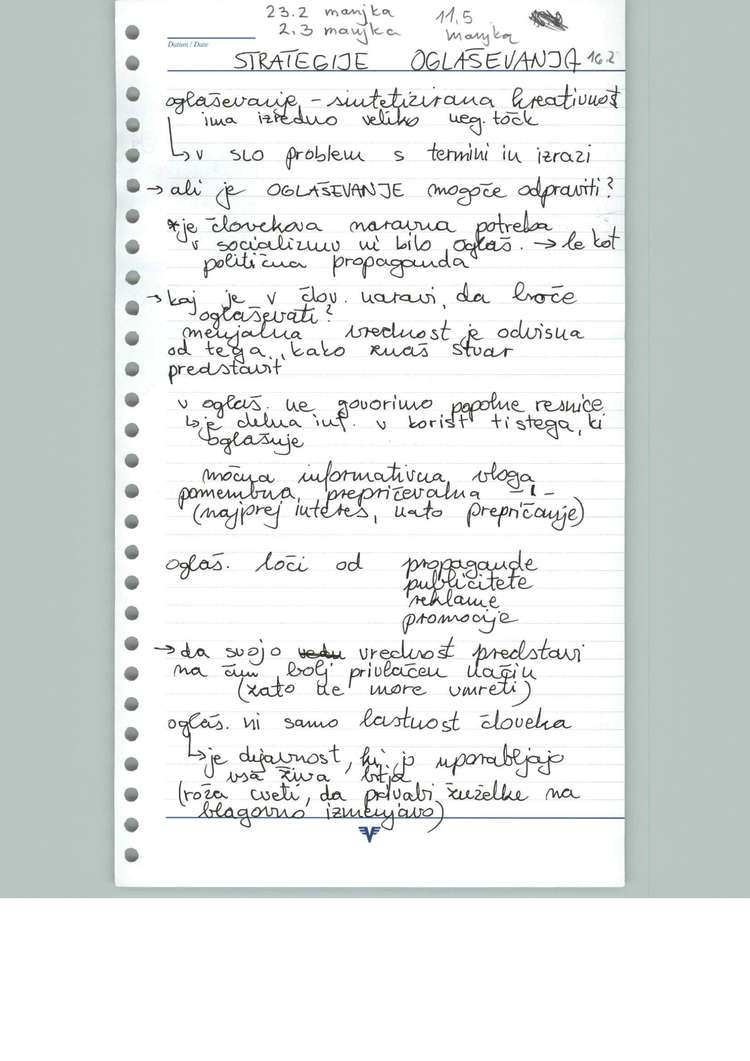 23.2 manjka
2.3 manjka
11.5
manjka
Datum / Date
STRATEGIJE OGLAŠEVANJA 16.2
oglaševanje - sintetizirana kreativnost
ima izredno veliko neg. točk
↳ v SLO problem s termini in izrazi
→ ali je OGLAŠEVANJE mogoče odpraviti?
*je človekova naravna potreba
v socializmu ni bilo oglaš. → le kot
politična propaganda
→ kaj je v člov. naravi, da hoče
oglaševati?
menjalna vrednost je odvisna
od tega, kako znaš stvar
predstavit
v oglaš. ne govorimo popolne resnice
↳ je delna inf. v korist tistega, ki
oglašuje
močna informativna vloga
pomembna, prepričevalna -1-
(najprej interes, nato prepričanje)
oglaš. loči od propagande
publicitete
reklame
promocije
→ da svojo vrednost predstavi
na čim bolj privlačen način
(zato ne more umreti)
oglaš. ni samo lastnost človeka
↳ je dejavnost, ki jo uporabljajo
vsa živa bitja
(roža cveti, da privabi žuželke na
blagovno izmenjavo)